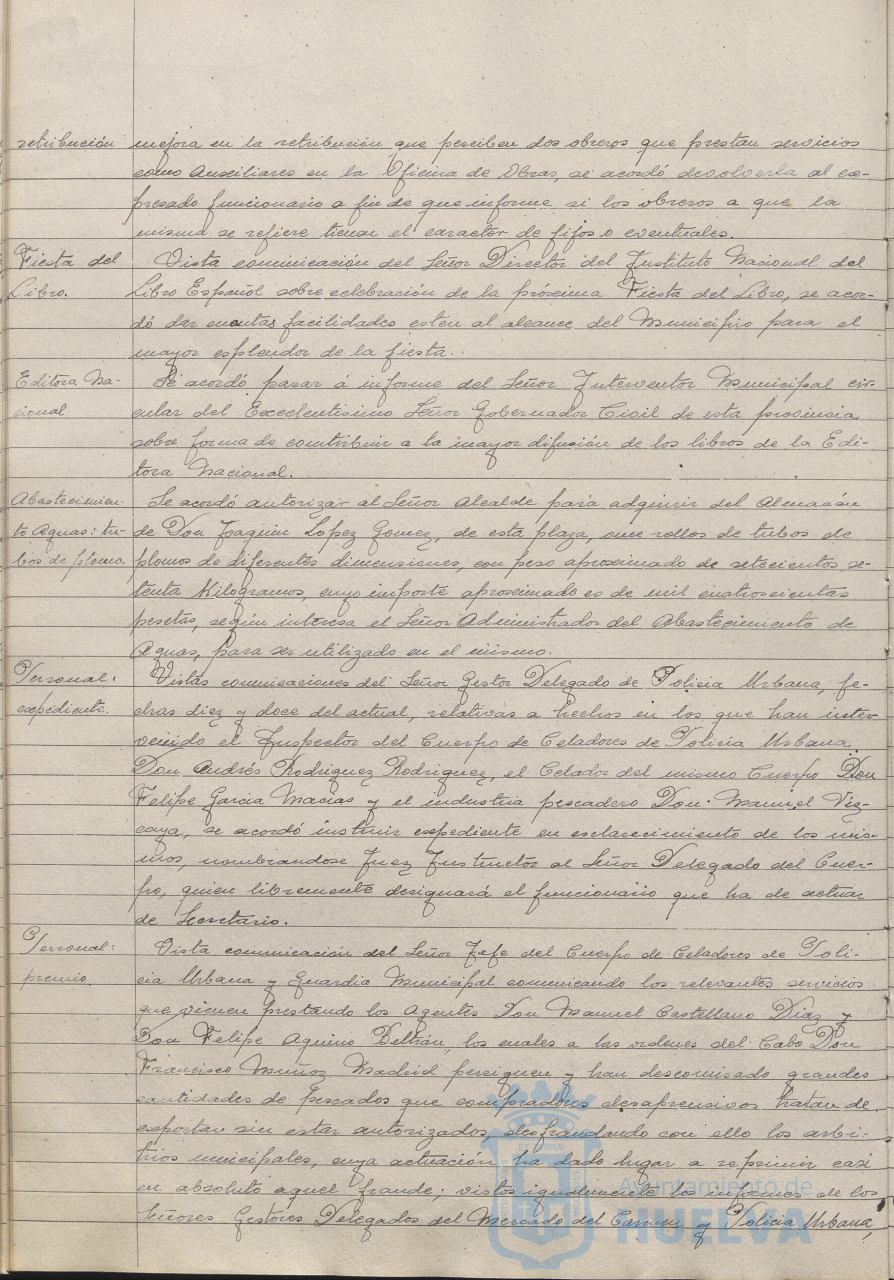 retribución mejora en la retribución que perciben dos obreros que prestan servicios
como Auxiliares en la Oficina de Obras, se acordó devolverla al ex-
presado funcionario a fin de que informe si los obreros a que la
misma se refiere tienen el caracter de fijos o eventuales.
Fiesta del Vista comunicación del Señor Director del Instituto Nacional del
Libro. Libro Español sobre celebración de la próxima Fiesta del Libro, se acor-
dó dar cuantas facilidades esten al alcance del Municipio para el
mayor esplendor de la fiesta.
Editora Na- Se acordó pasar á informe del Señor Interventor Municipal cir-
cional cular del Excelentisimo Señor Gobernador Civil de esta provincia
sobre forma de contribuir a la mayor difusión de los libros de la Edi-
tora Nacional.
Abastecimien- Se acordó autorizar al Señor Alcalde para adquirir del Almacén
to Aguas: tu- de Don Joaquin López Gomez, de esta plaza, once rollos de tubos de
bos de plomo. plomos de diferentes dimensiones, con peso aproximado de setecientos se-
tenta Kilogramos, cuyo importe aproximado es de mil cuatroscientas
pesetas, según interesa el Señor Administrador del Abastecimiento de
Aguas, para ser utilizado en el mismo.
Personal: Vistas comunicaciones del Señor Gestor Delegado de Policia Urbana, fe-
expediente. chas diez y doce del actual, relativas a hechos en los que han inter-
venido el Inspector del Cuerpo de Celadores de Policia Urbana
Don Andrés Rodriguez Rodriguez, el Celador del mismo Cuerpo Don
Felipe Garcia Macias y el industria pescadero Don Manuel Viz-
caya, se acordó instruir expediente en esclarecimiento de los mis-
mos, nombrandose Juez Instructor al Señor Delegado del Cuer-
po, quien libremente designará el funcionario que ha de actuar
de Secretario.
Personal: Vista comunicación del Señor Jefe del Cuerpo de Celadores de Poli-
premio. cia Urbana y Guardia Municipal comunicando los relevantes servicios
que vienen prestando los Agentes Don Manuel Castellano Diaz y
Don Felipe Aquino Beltrán, los cuales a las ordenes del Cabo Don
Francisco Muñoz Madrid persiguen y han descomisado grandes
cantidades de pescados que compradores desaprensivos tratan de
exportar sin estar autorizados, defraudando con ello los arbi-
trios municipales, cuya actuación ha dado lugar a reprimir casi
en absoluto aquel fraude; vistos igualmente los informes de los
Señores Gestores Delegados del Mercado del Carmen y Policia Urbana,
Ayuntamiento de
HUELVA